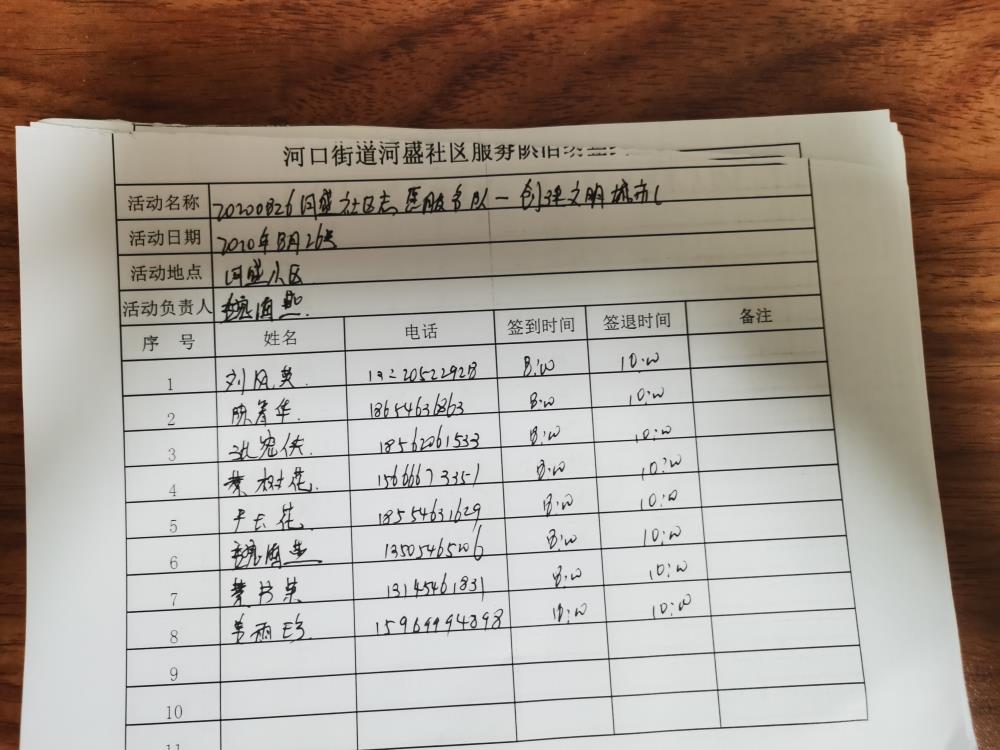 河口街道河盛社区服务队活动签
活动名称 20200826河盛社区志愿服务队一创建文明城市(
活动日期 2020年8月26号
活动地点 河盛小区
活动负责人 魏海燕.
序 号 姓名 电话 签到时间 签退时间 备注
1 刘凤英. 13220522928 8:00 10:00
2 18654636863 8:00 10:00
3 18562061533 8:00 10:00
4 黄树花. 15666673351 8:00 10:00
5 18554631629 8:00 10:00
6 魏海燕 13505465206 8:00 10:00
7 13145461831 8:00 10:00
8 15969994898 10:00 10:00
9
10
11